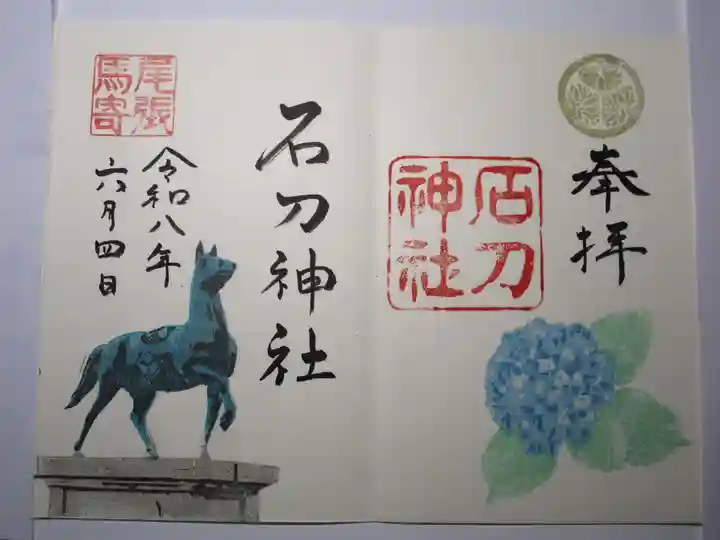 奉拝
石刀
神社
石刀神社
尾張
馬寄
令和八年
六月四日